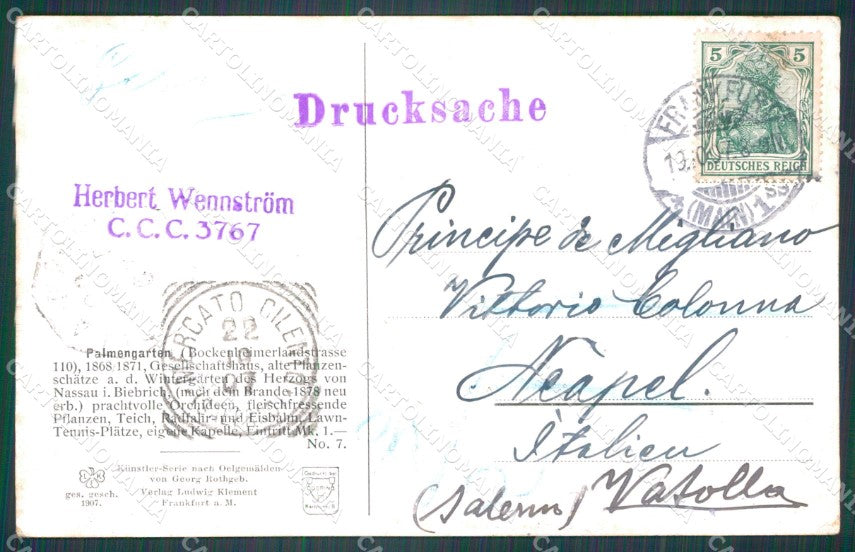 Drucksache
5 5
DEUTSCHES REICH
FRANKFURT
(MAIN) 1
Herbert Wennström
C.C.C. 3767
MERCATO CILENTO
22
Palmengarten (Bockenheimerlandstrasse
110), 1868/1871, Gesellschaftshaus, alte Pflanzen-
schätze a. d. Wintergarten des Herzogs von
Nassau i. Biebrich, (nach dem Brande 1878 neu
erb.) prachtvolle Orchideen, fleischfressende
Pflanzen, Teich, Radfahr- und Eisbahn, Lawn-
Tennis-Plätze, eigene Kapelle, Eintritt Mk. 1.—
No. 7.
Künstler-Serie nach Oelgemälden
von Georg Rothgeb.
ges. gesch.
1907.
Verlag Ludwig Klement
Frankfurt a. M.
Principe de Migliano
Vittorio Colonna
Neapel.
Italien
(Salerno) Vatolla
CARTOLINOMANIA